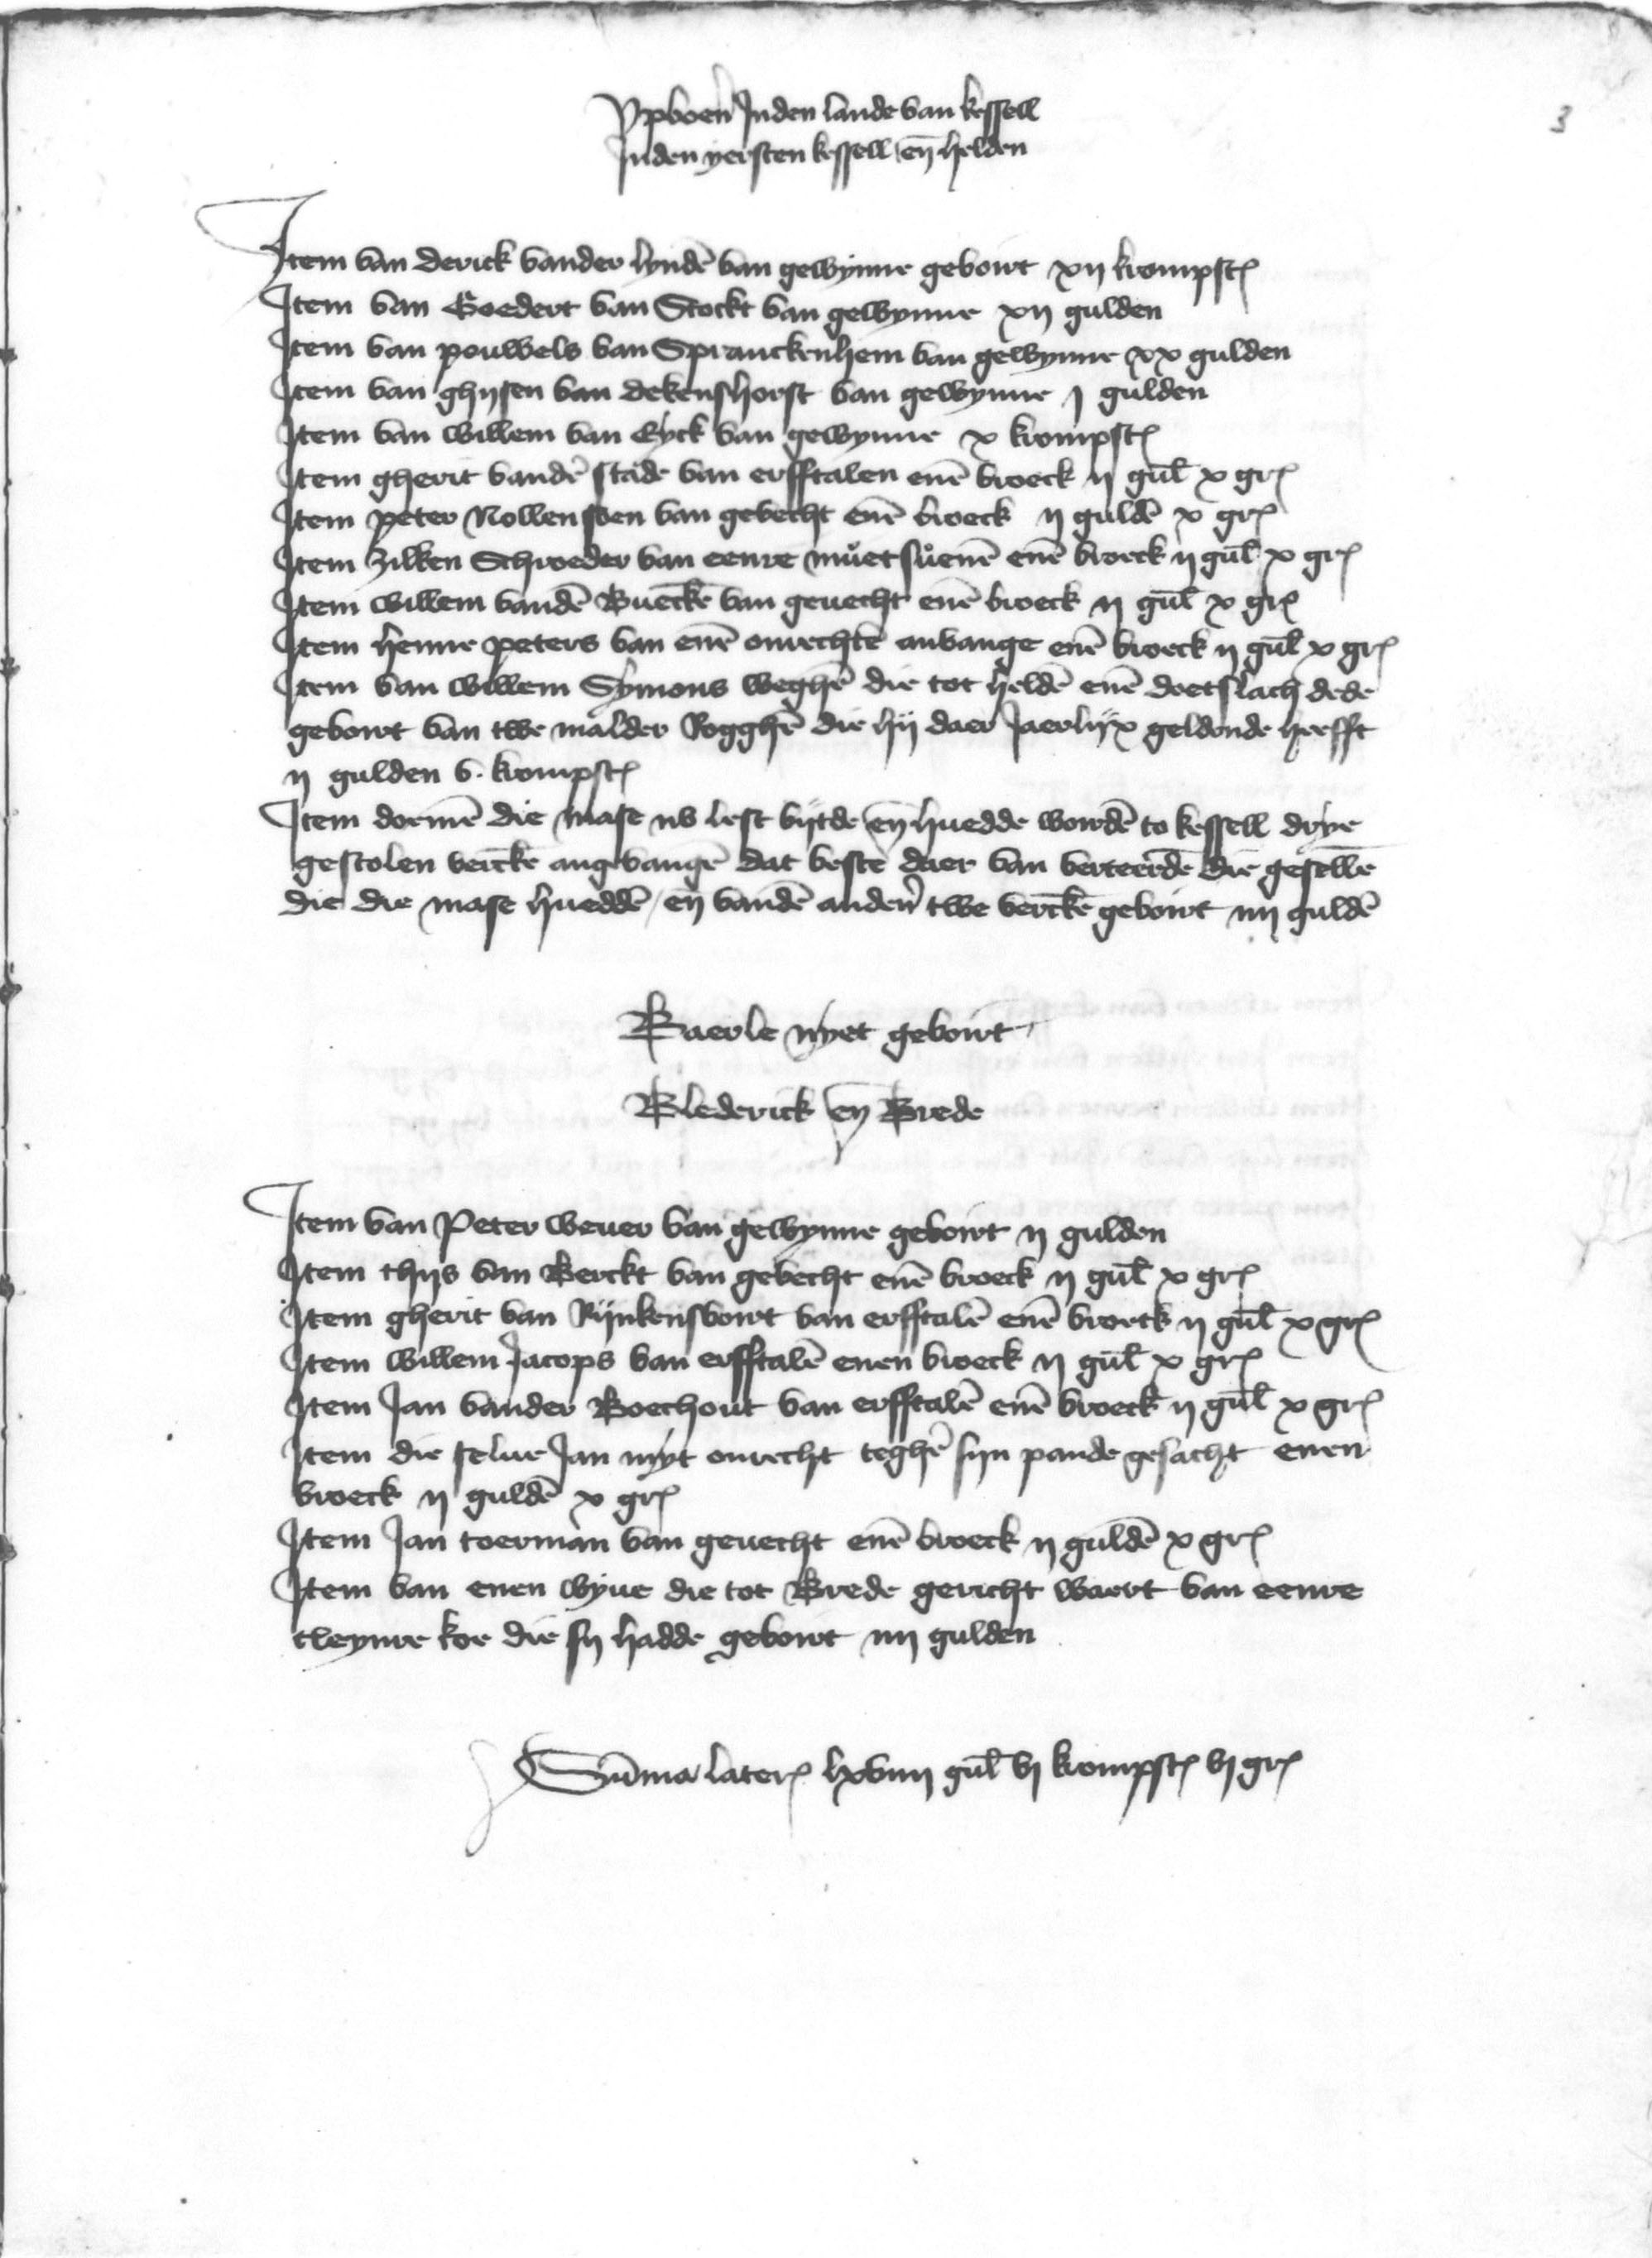 3
Vpboeñ Inden lande van kessell
Inden yersten kessell eñ helden
Item van derick vander lyndē van gewynne geboirt xij krompstꝭ
Item van Goedert van Stockt van gewynne xij gulden
Item van pouwels van Spranckenhem van gewynne xx gulden
Item van ghijsen van dekenshorst van gewynne j gulden
Item van willem van Eyck van gewynne x krompstꝭ
Item gherit vandē stade van erfftalen enē broeck ij gul̄ x grꝭ
Item peter Nollensoen van gevecht enē broeck ij guldē x grꝭ
Item zilken Schroeder van eenre můetsůenē enē broeck ij gul̄ x grꝭ
Item willem vandē Bueckē van geuecht enē broeck ij gul̄ x grꝭ
Item henne peters van enē onrechtē anvange enē broeck ij gul̄ x grꝭ
Item van willem Symons weghē die tot heldē enē doetslach dede
geboirt van twe malder Rogghē die hij daer Jaerlijx geldende heefft
ij gulden v. krompstꝭ
Item doemē die mase nv lest vijtde eñ huedde wordē to kessell drye
gestolen verckē angevangē dat beste daer van verteerdē die gesellē
die die mase hueddē / eñ vandē andeñ twe verckē geboirt iiij guldē
Baerle nyet geboirt
Blederick eñ Brede
Item van Peter wever van gewynne geboirt ij gulden
Item thijs van Berckt van gevecht enē broeck ij gul̄ x grꝭ
Item gherit van Rijnkensvoirt van erfftalē enē broeck ij gul̄ x grꝭ
Item willem Jacops van erfftalē enen broeck ij gul̄ x grꝭ
Item Jan vander Boechout van erfftalē enē broeck ij gul̄ x grꝭ
Item die selue Jan myt onrecht teghē sijn pande gesacht enen
broeck ij guldē x grꝭ
Item Jan toerman van geuecht enē broeck ij guldē x grꝭ
Item van enen wyue die tot Brede gericht waert van eenre
cleynre koe die sij hadde geboirt iiij gulden
Sūma laterꝭ lxviiij gul̄ vj krompstꝭ vj grꝭ